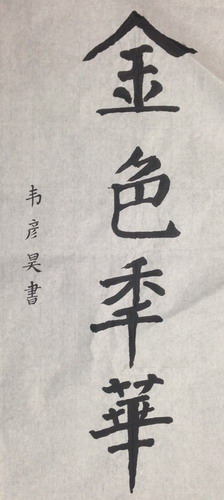 金色秊華
韦彦昊書